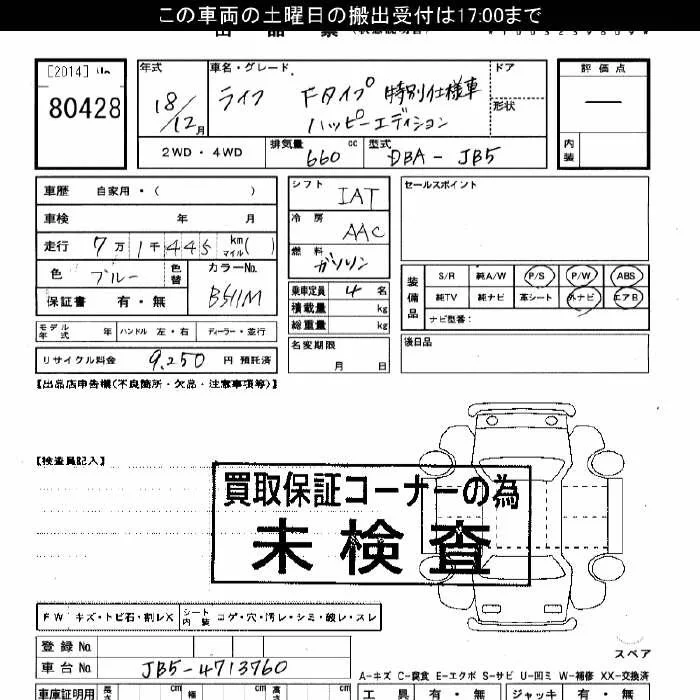 この車両の土曜日の搬出受付は17:00まで
[2014]
80428
年式 車名・グレード ドア 評価点
18/12月 ライフ Fタイプ 特別仕様車
ハッピーエディション 形状 —
2WD・4WD 排気量 660 cc 型式 DBA-JB5 内装
車歴 自家用・( )
車検 年 月
走行 7万1千445 km マイル ( )
色 ブルー 色替 カラーNo. B511M
保証書 有・無
モデル年式 年 ハンドル 左・右 ディーラー・並行
リサイクル料金 9,250 円 預託済
シフト IAT
冷房 AAC
燃料 ガソリン
乗車定員 4 名
積載量 kg
総重量 kg
名変期限
月 日
セールスポイント
装備品 S/R 純A/W P/S P/W ABS
純TV 純ナビ 革シート 外ナビ エアB
ナビ型番:
後日品
【出品店申告欄(不良箇所・欠品・注意事項等)】
【検査員記入】
買取保証コーナーの為
未検査
FW キズ・トビ石・割レX シート内装 コゲ・穴・汚レ・シミ・破レ・スレ
スペア
登録No.
車台No. JB5-4713760
A-キズ C-腐食 E-エクボ S-サビ U-凹ミ W-補修 XX-交換済
車庫証明用 長さ cm 幅 cm 高さ cm
工具 有・無 ジャッキ 有・無